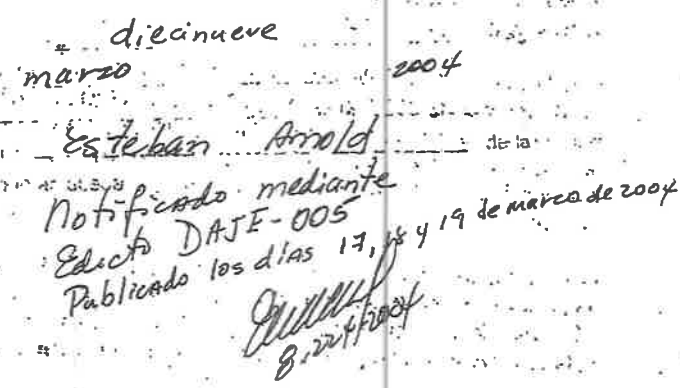 diecinueve
marzo 2004
Esteban Arnold de la
Notificado mediante
Edicto DAJE-005
Publicado los días 17, 18 y 19 de marzo de 2004